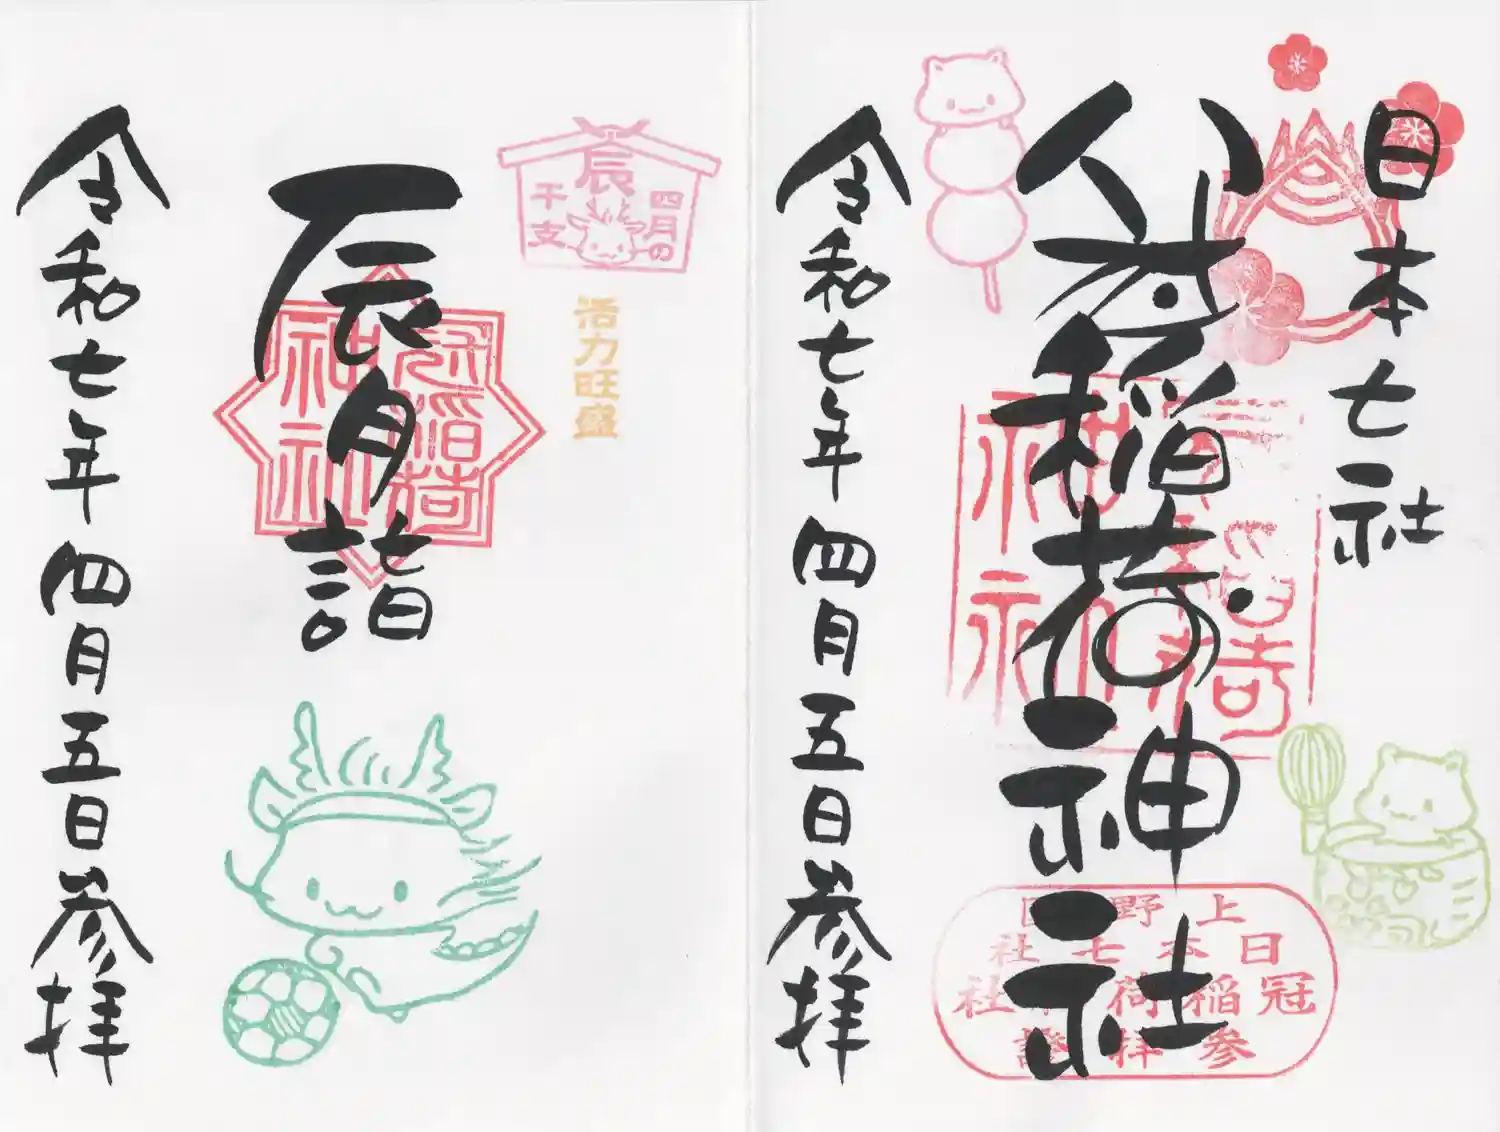 日本七社
冠稲荷神社
令和七年四月五日参拝
上野国
日本七社
冠稲荷神社
参拝證
四月の
辰
干支
活力旺盛
辰月詣
冠稲荷
神社
令和七年四月五日参拝